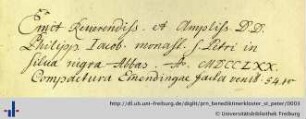 Emit Reverendiss. et Ampliss. D.D.
Philipp. Iacob. monast. S. Petri in
silva nigra Abbas. Ao. MDCCLXX.
Compactura Emendingae facta venit 54 xr
http://dl.ub.uni-freiburg.de/diglit/prn_benediktinerkloster_st_peter/0003
© Universitätsbibliothek Freiburg